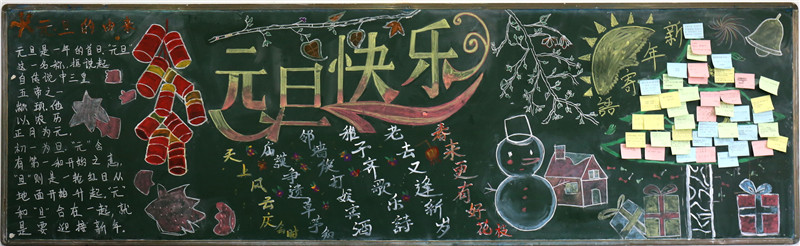 元旦的
元旦是一年的首日,"元旦"
这一名称,据说起
自传说中三皇
五帝之一
颛顼,他
以农历
正月为元,
初一为旦,"元"含
有第一和开始之意,
"旦"则是一轮红日从
地面开始升起,"元"
和"旦"合在一起,就
是要迎接新年。
元旦快乐
天上风云庆会时
庙謨争遗草茅知
邻墙旋打娱宾酒
稚子齐歌乐诗
老去又逢新岁
春来更有好花枝
新年寄語